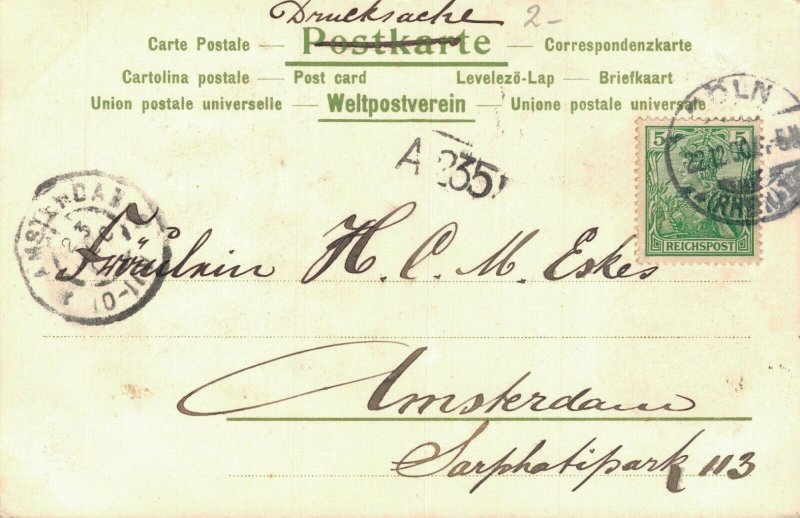 Drucksache 2-
Carte Postale — Postkarte — Correspondenzkarte
Cartolina postale — Post card Levelezö-Lap — Briefkaart
Union postale universelle — Weltpostverein — Unione postale universale
A 235
5 5
REICHSPOST
AMSTERDAM
10-11
Fräulein H. C. M. Eskes
Amsterdam
Sarphatipark 113